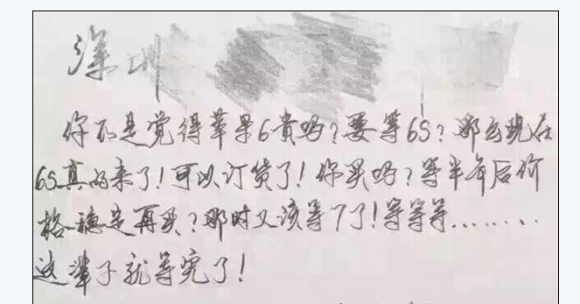 深圳
你不是觉得苹果6贵吗?要等6S?那么现在
6S真的来了!可以订货了!你买吗?等半年后价
格稳定再买?那时又该等7了!等等等........
这辈子就等完了!